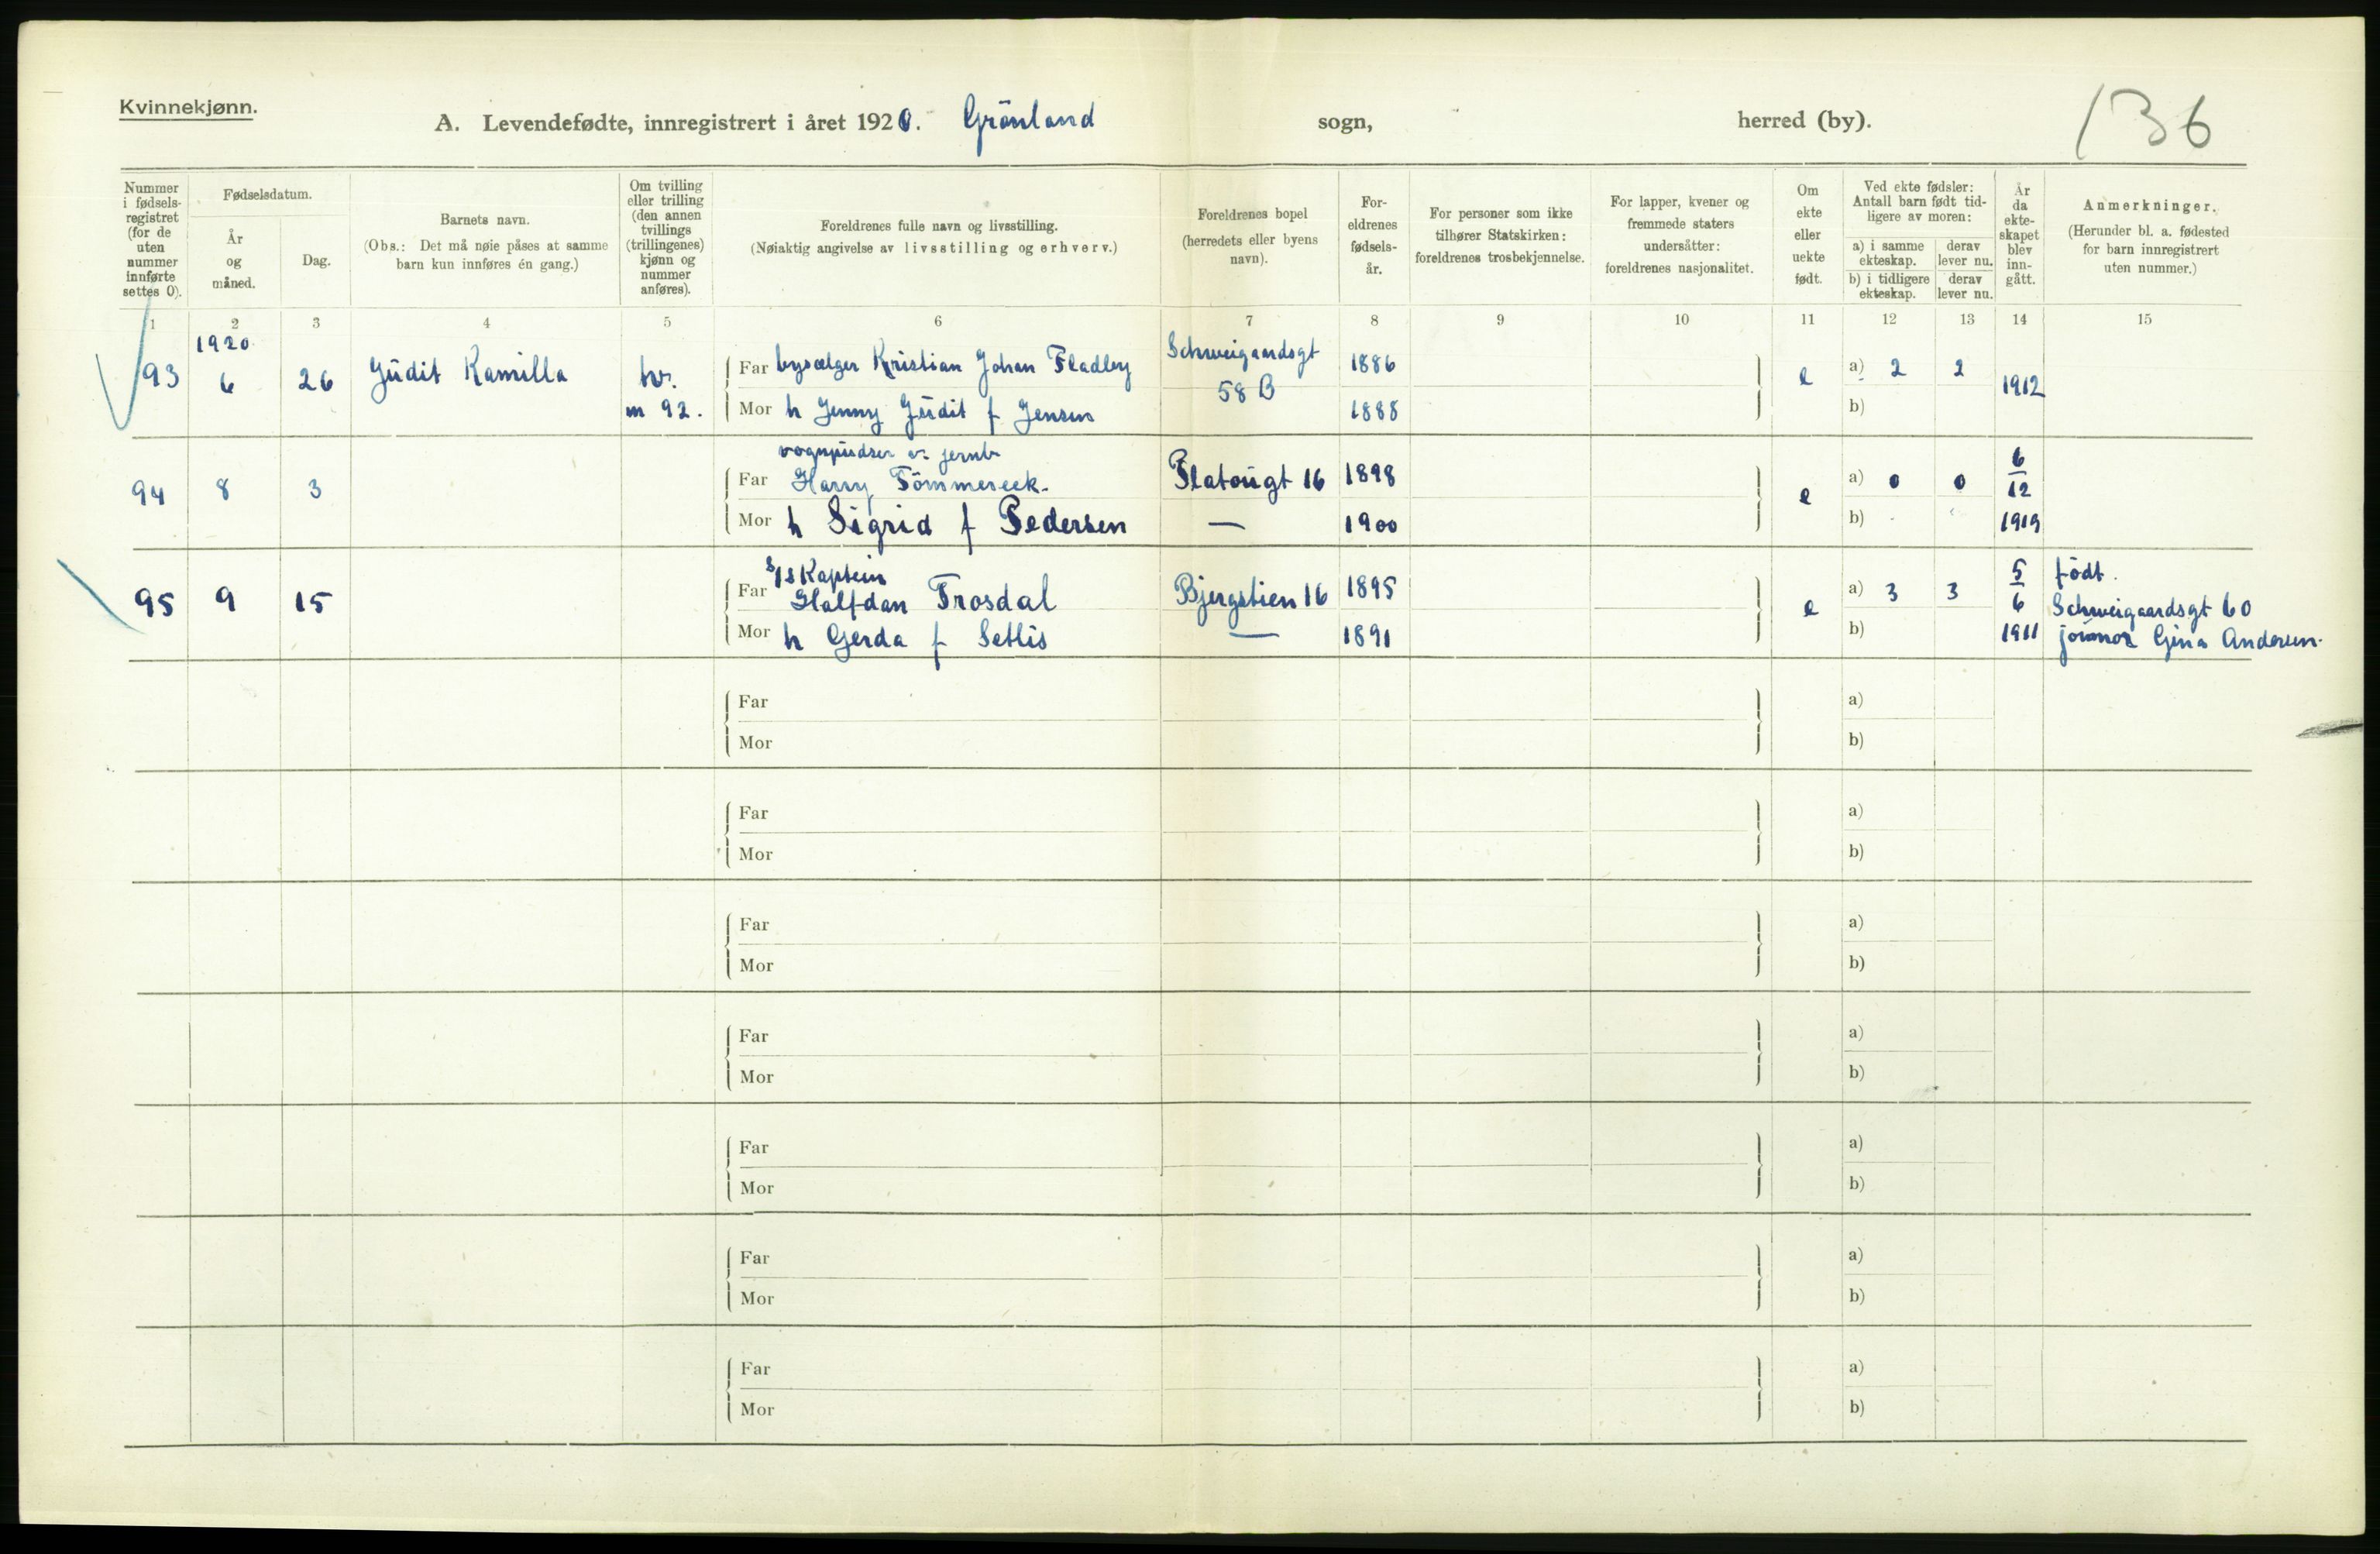 Kvinnekjønn.
A. Levendefødte, innregistrert i året 1920. Grönland sogn, herred (by). 136
Nummer i fødselsregistret (for de uten nummer innførte settes 0).
Fødselsdatum.
År og måned.
Dag.
Barnets navn.
(Obs.: Det må nøie påses at samme barn kun innføres én gang.)
Om tvilling eller trilling (den annen tvillings (trillingenes) kjønn og nummer anføres).
Foreldrenes fulle navn og livsstilling.
(Nøiaktig angivelse av livsstilling og erhverv.)
Foreldrenes bopel (herredets eller byens navn).
Foreldrenes fødselsår.
For personer som ikke tilhører Statskirken: foreldrenes trosbekjennelse.
For lapper, kvener og fremmede staters undersåtter: foreldrenes nasjonalitet.
Om ekte eller uekte født.
Ved ekte fødsler: Antall barn født tidligere av moren:
a) i samme ekteskap. derav lever nu.
b) i tidligere ekteskap. derav lever nu.
År da ekteskapet blev inngått.
Anmerkninger.
(Herunder bl. a. fødested for barn innregistrert uten nummer.)
1 2 3 4 5 6 7 8 9 10 11 12 13 14 15
1920
93 6 26 Judit Kamilla kv. Far bysælger Kristian Johan Fladby Schweigaardsgt 1886 e a) 2 2 1912
m 92. Mor h Jenny Judit f Jensen 58 B 1888 b)
vognpudser v. jernb
94 8 3 Far Harry Tömmereek. Platougt 16 1898 e a) 0 0 6/12
Mor h Sigrid f Pedersen — 1900 b) 1919
s/s Kaptein
95 9 15 Far Halfdan Trosdal Bjergstien 16 1895 e a) 3 3 5/6 födt. Schweigaardsgt 60
Mor h Gerda f Setlis — 1891 b) 1911 jormor Gina Andersen.
Far a)
Mor b)
Far a)
Mor b)
Far a)
Mor b)
Far a)
Mor b)
Far a)
Mor b)
Far a)
Mor b)
Far a)
Mor b)